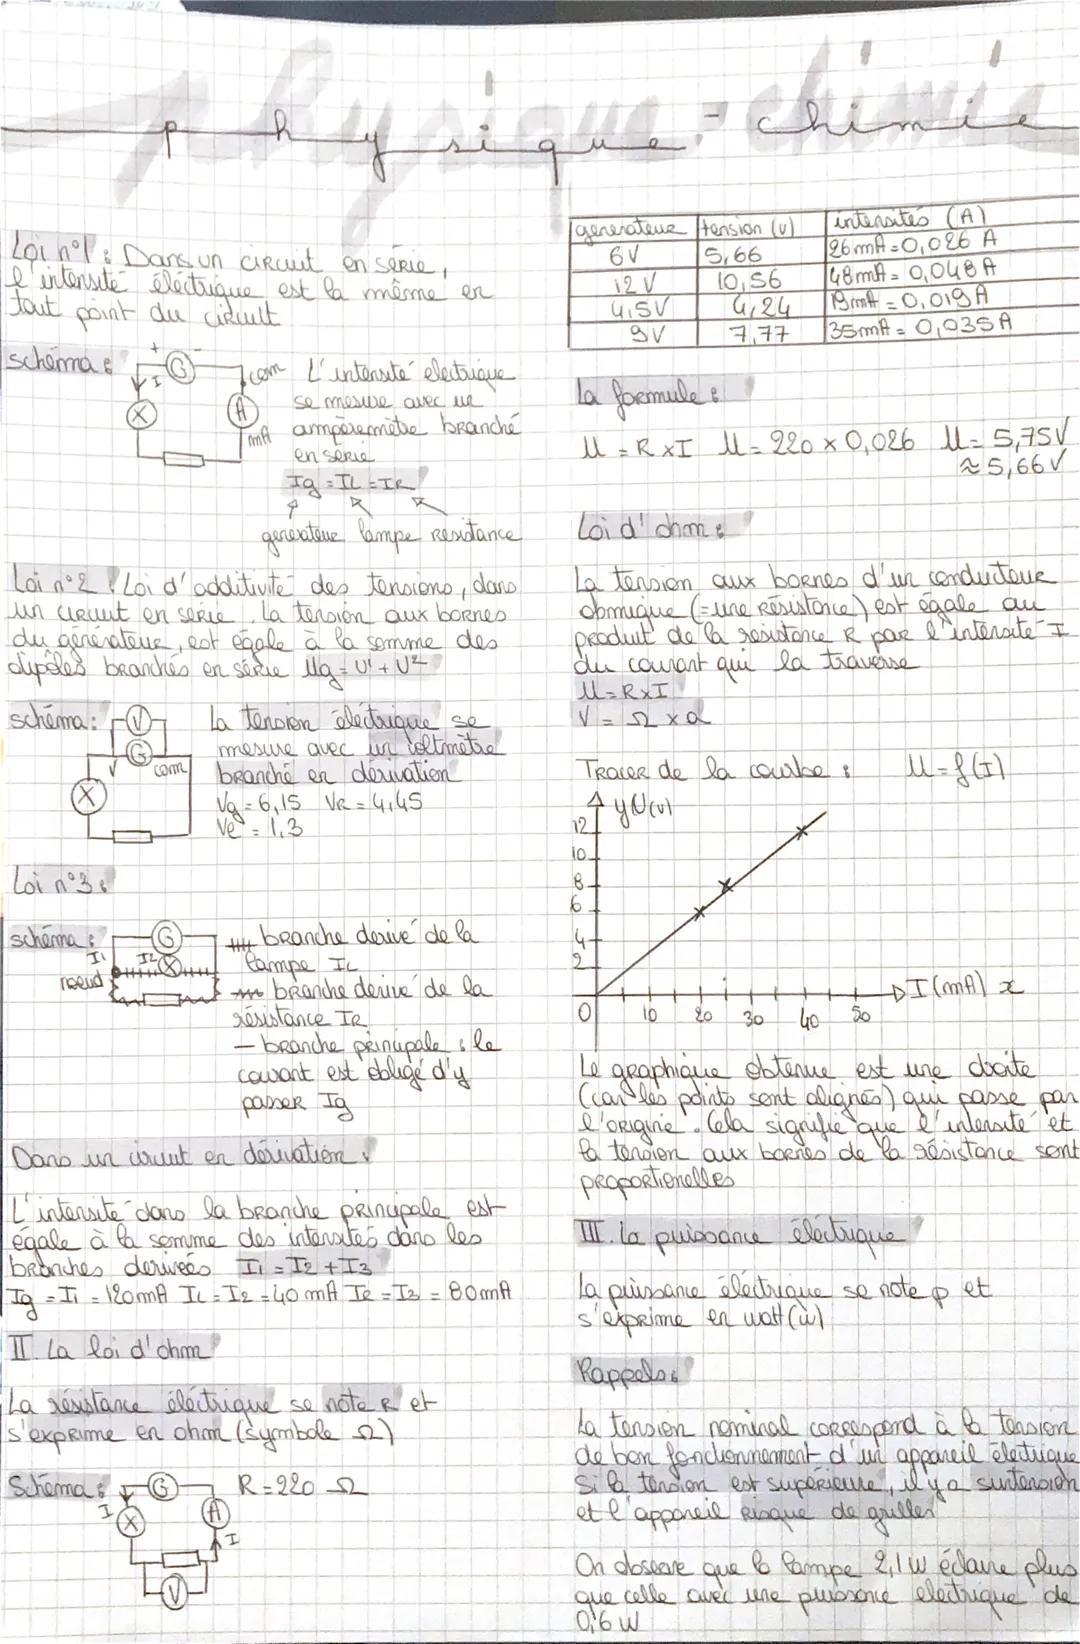 physique-chimie
Loi n°1 : Dans un circuit en série,
l'intensité électrique est la même en
tout point du circuit
schéma :
+ G -
I
com
X
A
mA
L'intensité électrique
se mesure avec un
ampèremètre branché
en série
Ig = IL = IR
generateur lampe resistance
Loi n°2 : Loi d'additivité des tensions, dans
un circuit en série. La tension aux bornes
du générateur, est égale à la somme des
dipôles branchés en série Ug = U1 + U2
schéma :
V
G
V com
X
La tension électrique se
mesure avec un voltmètre
branché en dérivation
Vg = 6,15 VR = 4,45
Ve = 1,3
Loi n°3 :
schéma :
G
I1 I2
X
noeud
branche derivé de la
lampe IL
branche derivé de la
résistance IR
— branche principale : le
courant est obligé d'y
passer Ig
Dans un circuit en dérivation :
L'intensité dans la branche principale est
égale à la somme des intensités dans les
branches derivées I1 = I2 + I3
Ig = I1 = 120mA IL = I2 = 40 mA IR = I3 = 80mA
II. La loi d'ohm
La résistance éléctrique se note R et
s'exprime en ohm (symbole Ω)
Schéma :
G
R = 220 Ω
I
X
A
I
V
generateur tension (v) intensités (A)
6V 5,66 26mA = 0,026 A
12V 10,56 48mA = 0,048A
4,5V 4,24 19mA = 0,019A
9V 7,77 35mA = 0,035A
La formule :
U = R x I U = 220 x 0,026 U = 5,75V
≈ 5,66V
Loi d'ohm :
La tension aux bornes d'un conducteur
obmique (= une résistance) est égale au
produit de la resistance R par l'intensité I
du courant qui la traverse
U = R x I
V = Ω x a
Tracer de la courbe : U = f(I)
y U(v)
12
10
8
6
4
2
0 10 20 30 40 50
I (mA) x
Le graphique obtenue est une droite
(car les points sont alignés) qui passe par
l'origine. Cela signifie que l'intensité et
la tension aux bornes de la résistance sont
proportionelles
III. La puissance éléctrique
La puissance éléctrique se note p et
s'exprime en watt (w)
Rappels :
La tension nominal correspond à la tension
de bon fonctionnement d'un appareil électrique
Si la tension est supérieure, il y a surtension
et l'appareil risque de griller
On observe que la lampe 2,1 w éclaire plus
que celle avec une puissance electrique de
0,6 W